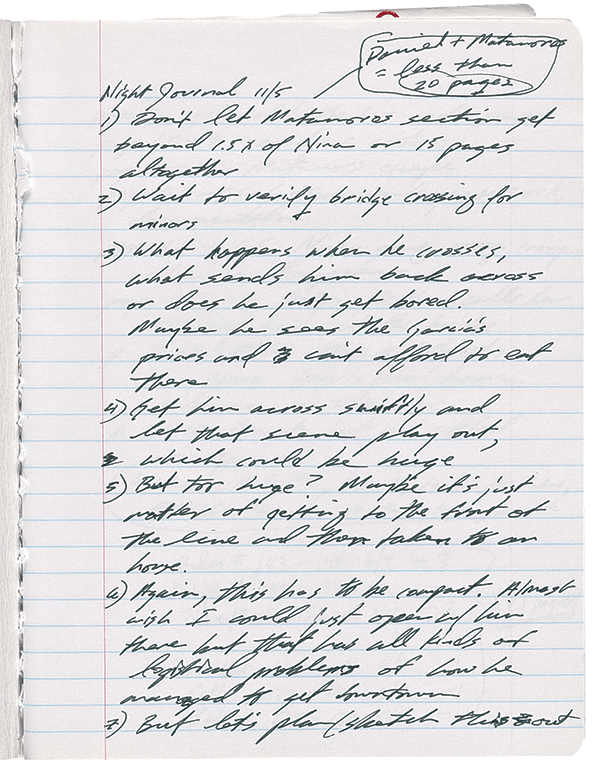 Daniel + Matamoros
= less than
20 pages
Night Journal 11/5
1) Don't let Matamoros section get
beyond 1.5x of Nina or 15 pages
altogether
2) Wait to verify bridge crossing for
minors
3) What happens when he crosses,
what sends him back across
or does he just get bored.
Maybe he sees the Garcia's
prices and can't afford to eat
there
4) Get him across swiftly and
let that scene play out,
which could be huge
5) But too huge? Maybe it's just
matter of getting to the front of
the line and then taken to an
house.
6) Again, this has to be compact. Almost
wish I could just open w/ him
there but that has all kinds of
logistical problems of how he
managed to get downtown
7) But let's plan/sketch this out